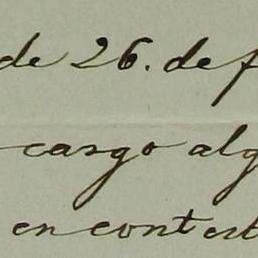 de 26. de f
cargo alg
en contest